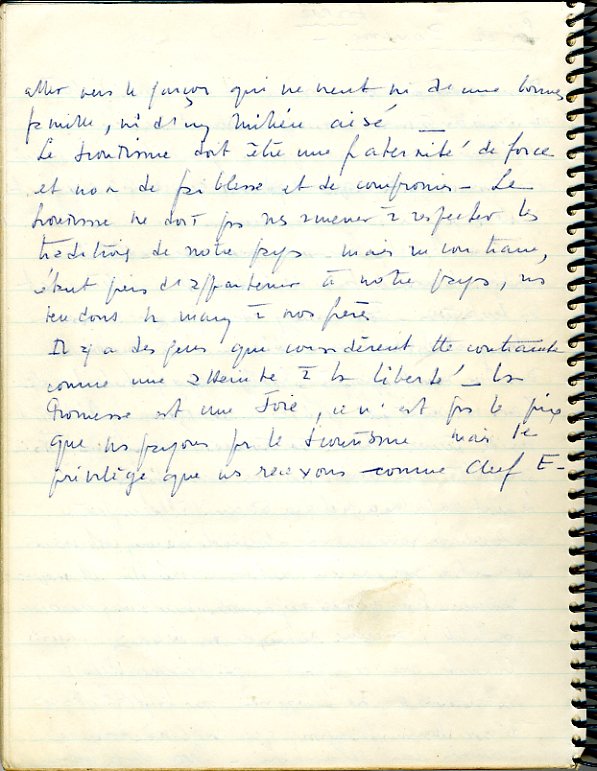 aller vers le garçon qui ne vient ni d'une bonne
famille, ni d'un milieu aisé —
Le scoutisme doit être une fraternité de force
et non de faiblesse et de compromis - Le
scoutisme ne doit pas ns amener à respecter les
traditions de notre pays mais au contraire,
étant fiers d'appartenir à notre pays, ns
tendons la main à nos frères
Il y a des gens qui considèrent tte contrainte
comme une atteinte à la liberté - La
Promesse est une Joie, ce n'est pas le prix
que ns payons pr le scoutisme mais le
privilège que ns recevons - comme Chef E-